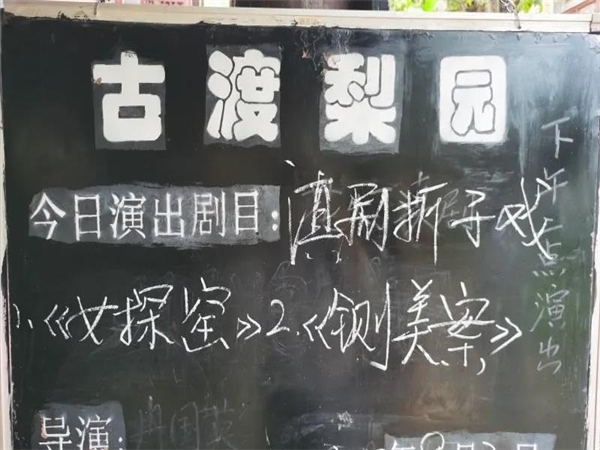 古渡梨园
今日演出剧目:滇剧折子戏
1.《女探窑》2.《铡美案》
下午
点演出
导演:
年 月 日